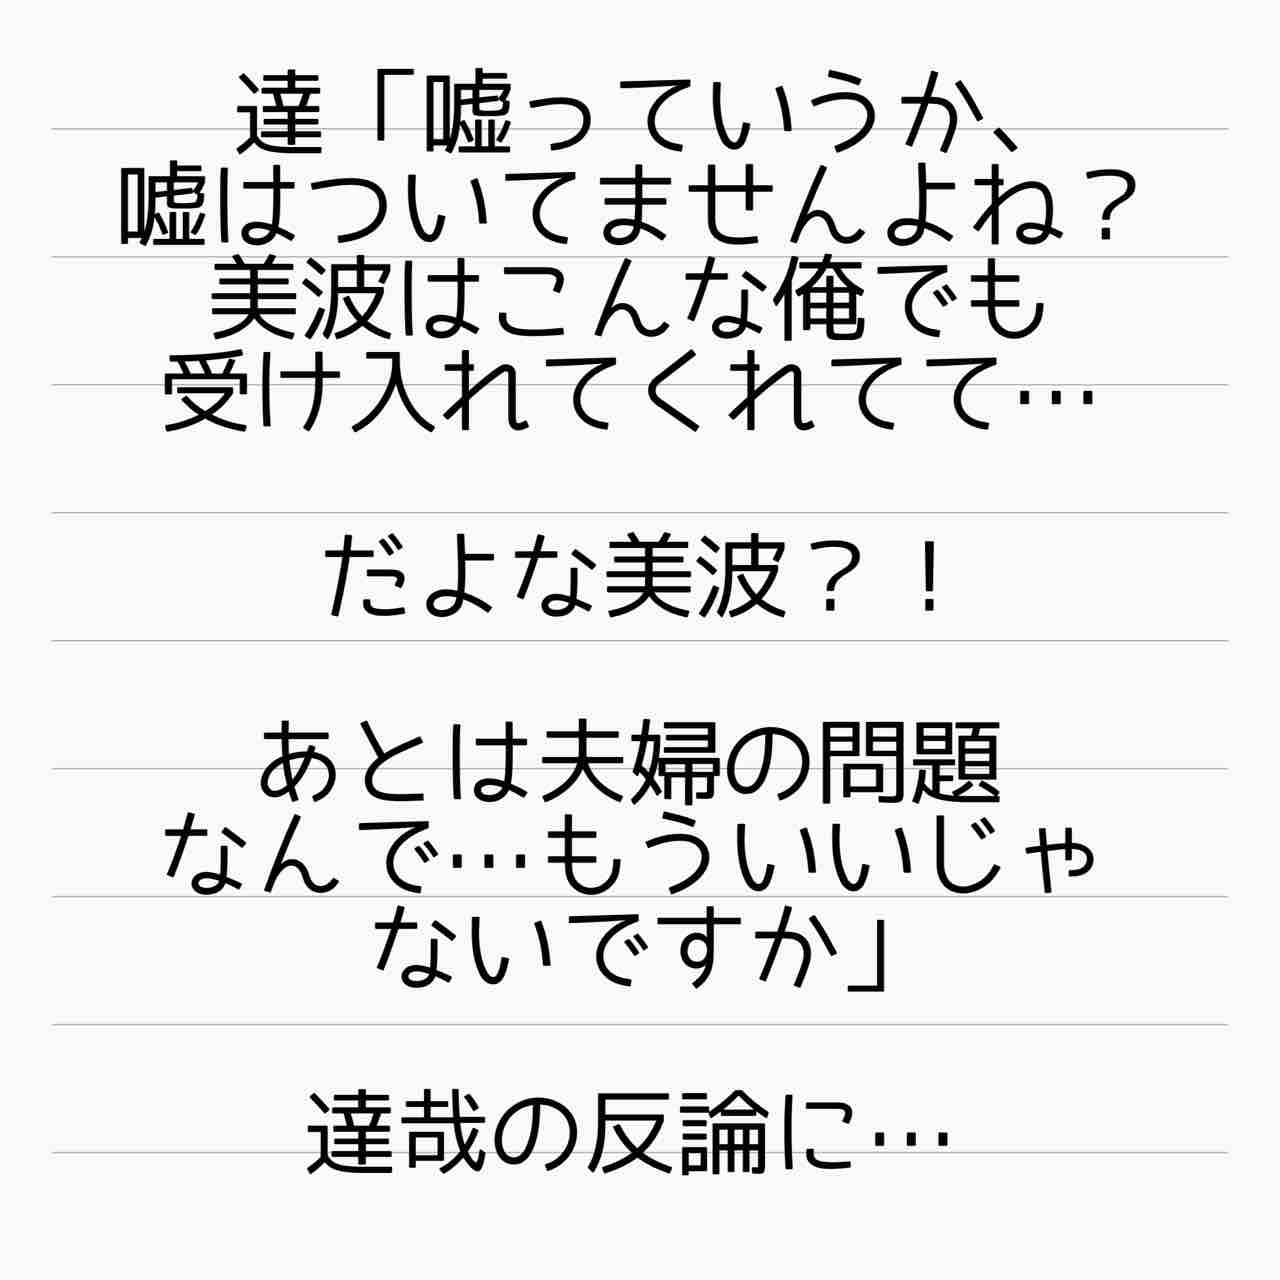 達「嘘っていうか、
嘘はついてませんよね？
美波はこんな俺でも
受け入れてくれてて…
だよな美波？！
あとは夫婦の問題
なんで…もういいじゃ
ないですか」
達哉の反論に…